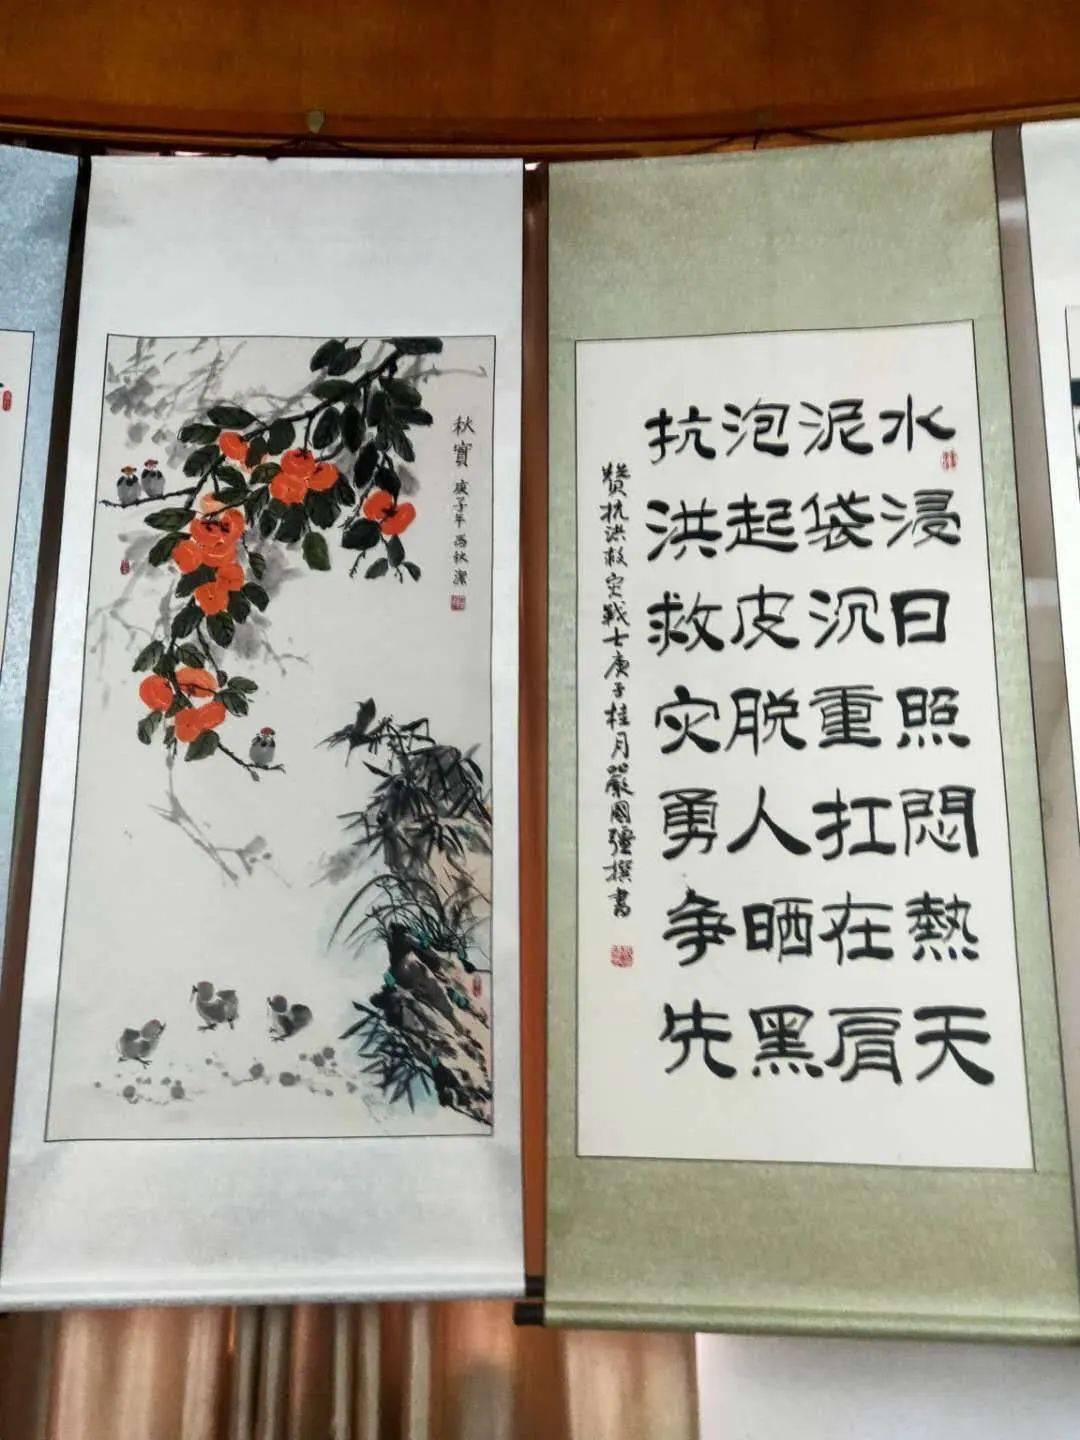 秋寶
庚子年馮秋潔
水浸日照悶熱天
泥袋沉重扛在肩
泡起皮脱人晒黑
抗洪救灾勇争先
贊抗洪救灾战士庚子桂月嚴國強撰書